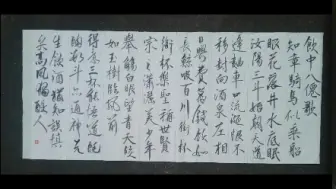 飲中八僊歌
知章騎馬似乘船
眼花落井水底眠
汝陽三斗始朝天道
逢麴車口流涎恨不
移封向酒泉左相
日興費萬錢飲如
長鯨吸百川銜杯
銜杯樂聖稱世賢
宗之瀟灑美少年
舉觴白眼望青天皎
如玉樹臨風前
三杯
斗六通神
生飲酒
高風
人